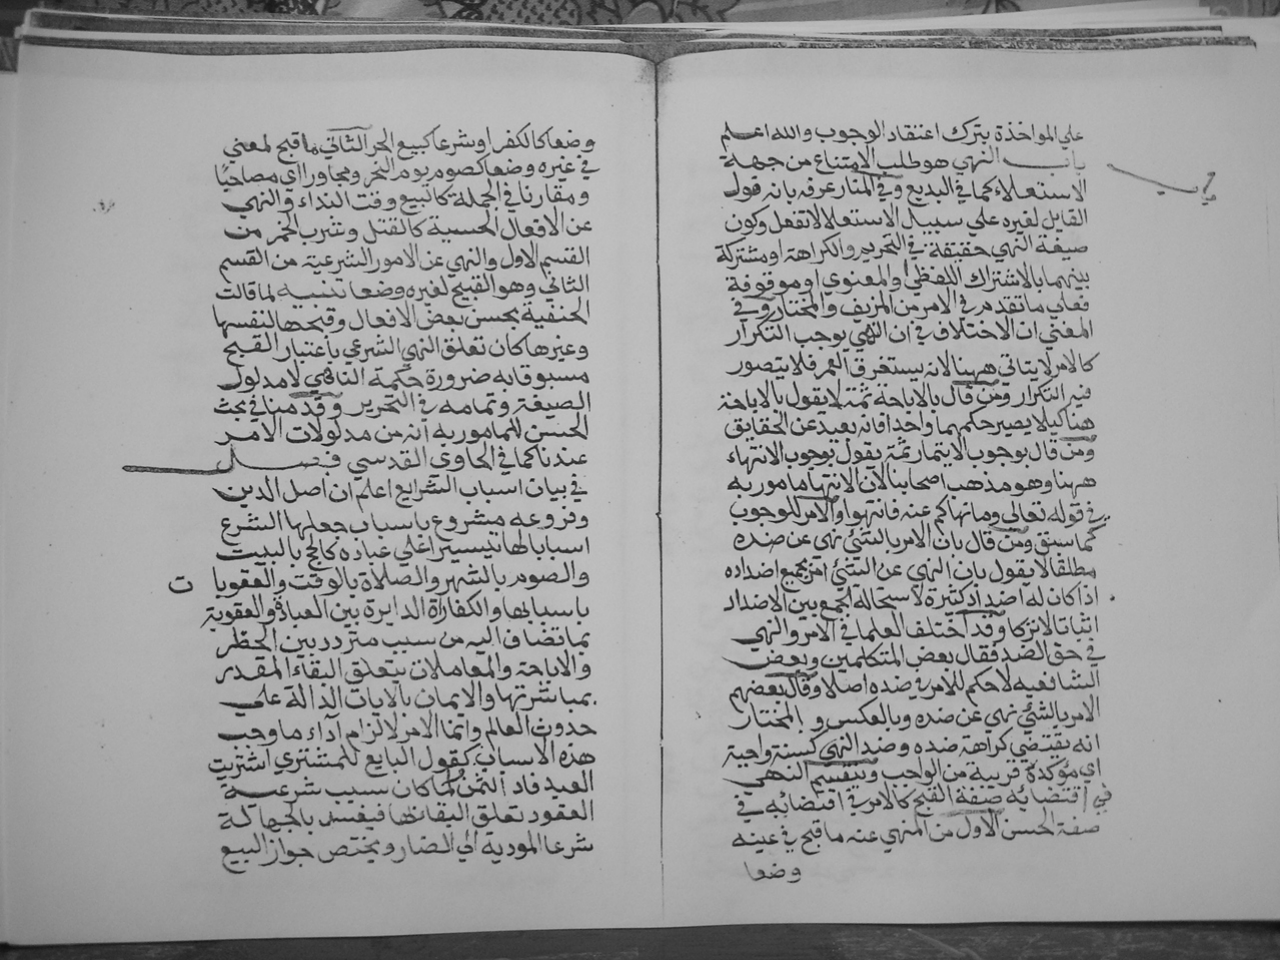 علي المواخذة بترك اعتقاد الوجوب والله اعلم
باب النهي هو طلب الامتناع من جهة
الاستعلاء كما في البديع وفي المنار عرفه بانه قول
القايل لغيره علي سبيل الاستعلا لا تفعل وكون
صيغة النهي حقيقة في التحريم والكراهة او مشتركة
بينهما بالاشتراك اللفظي او المعنوي او موقوفة
فعلي ما تقدم في الامر من المزيف والمختار وفي
المغني ان الاختلاف في ان النهي يوجب التكرار
كالامر لا يتاتي ههنا لانه يستغرق العمر فلا يتصور
فيه التكرار ومن قال بالاباحة ثمة لا يقول بالاباحة
هنا كيلا يصير حكمهما واحدا فانه بعيد عن الحقايق
ومن قال بوجوب الايتمار ثمة يقول بوجوب الانتهاء
ههنا وهو مذهب اصحابنا لان الانتها مامور به
في قوله تعالي وما نهاكم عنه فانتهوا والامر للوجوب
كما سبق ومن قال بان الامر بالشئ نهي عن ضده
مطلقا لا يقول بان النهي عن الشئ امر بجميع اضداده
اذا كان له اضداد كثيرة لاستحالة الجمع بين الاضداد
اثباتا لا تركا وقد اختلف العلما في الامر والنهي
في حق الضد فقال بعض المتكلمين وبعض
الشافعية لا حكم للامر في ضده اصلا وقال بعضهم
الامر بالشئ نهي عن ضده وبالعكس والمختار
انه يقتضي كراهة ضده وضد النهي كسنة واجبة
اي مؤكدة قريبة من الواجب وينقسم النهي
في اقتضائه صفة القبح كالامر في اقتضائه في
صفة الحسن الاول من المنهي عنه ما قبح في عينه
وضعا
وضعا كالكفر او شرعا كبيع الحر الثاني ما قبح لمعني
في غيره وضعا كصوم يوم النحر ومجاورا اي مصاحبا
ومقارنا في الجملة كالبيع وقت النداء والنهي
عن الافعال الحسية كالقتل وشرب الخمر من
القسم الاول والنهي عن الامور الشرعية من القسم
الثاني وهو القبيح لغيره وضعا تنبيه لما قالت
الحنفية بحسن بعض الافعال وقبحها لنفسها
وغيرها كان تعلق النهي الشرعي باعتبار القبح
مسبوقا به ضرورة حكمة الناهي لا مدلول
الصيغة وتمامه في التحرير وقدمنا في بحث
الحسن للمامور به انه من مدلولات الامر
عندنا كما في الحاوي القدسي فصل
في بيان اسباب الشرايع اعلم ان اصل الدين
وفروعه مشروع باسباب جعلها الشرع
اسبابا لها تيسيرا علي عباده كالحج بالبيت
والصوم بالشهر والصلاة بالوقت والعقوبات
باسبابها والكفارة الدايرة بين العبادة والعقوبة
بما تضاف اليه من سبب متردد بين الحظر
والاباحة والمعاملات بتعلق البقاء المقدر
بمباشرتها والايمان بالايات الدالة علي
حدوث العالم وانما الامر لالزام آداء ما وجب
هذه الاسباب كقول البايع للمشتري اشتريت
العبد فاد الثمن ولما كان سبب شرعية
العقود تعلق البقا بها فيفسد بالجهالة
شرعا المودية الي الضار ويختص جواز البيع